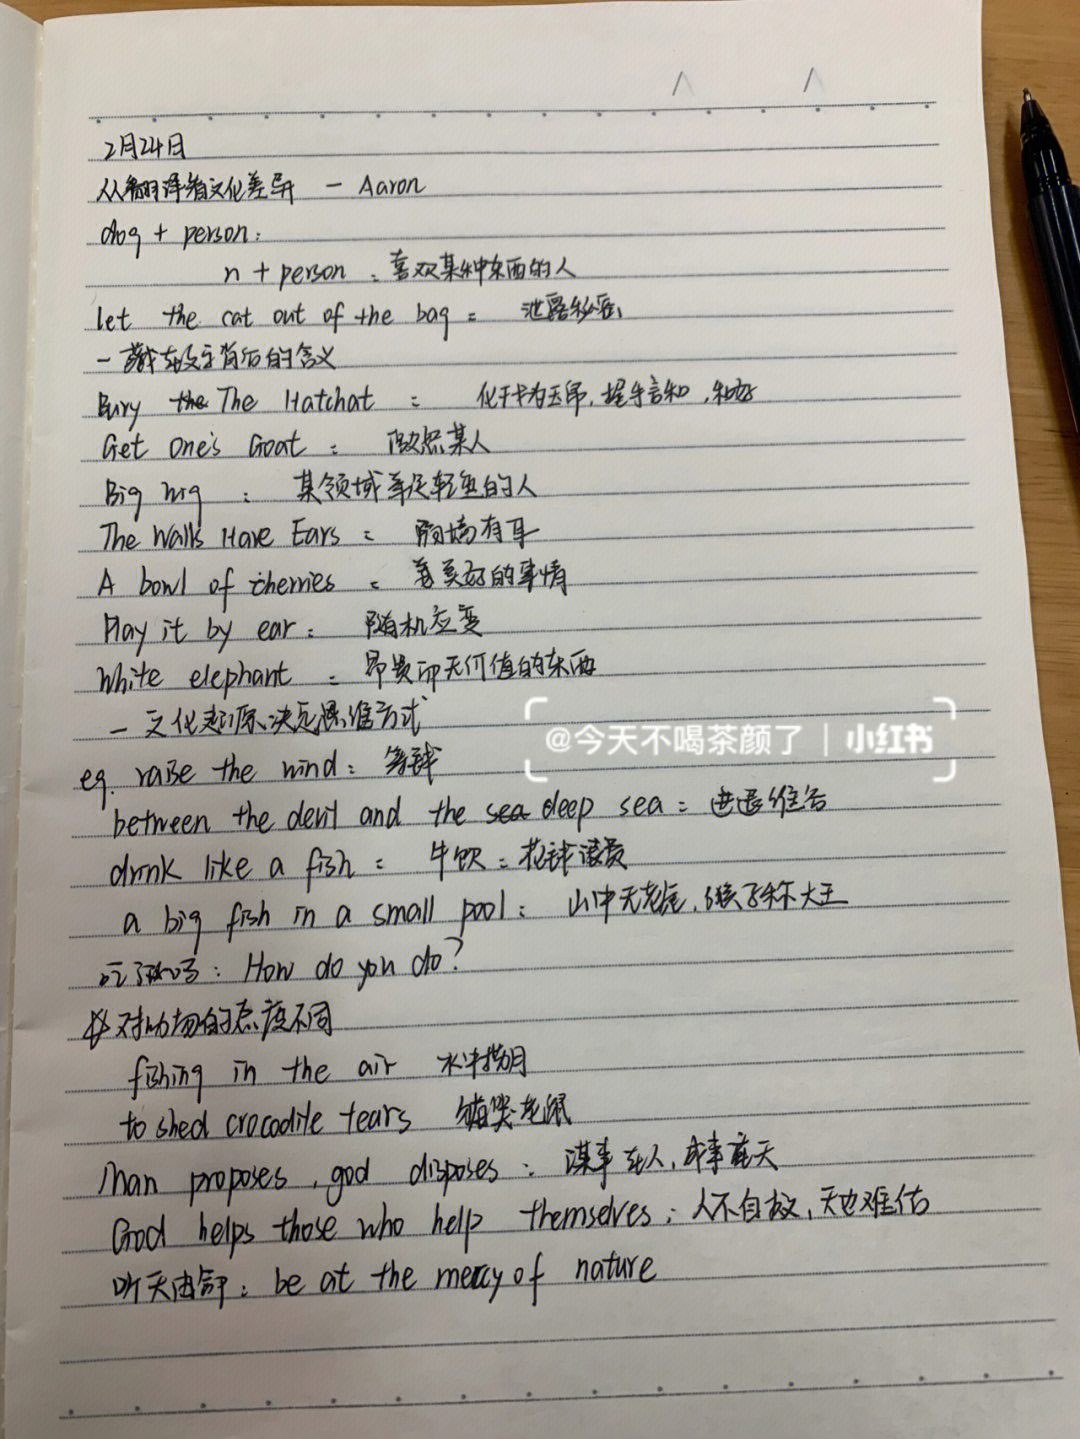 2月24日
从翻译看文化差异 - Aaron
dog + person:
n + person : 喜欢某种东西的人
let the cat out of the bag = 泄露秘密
- 藏在文字背后的含义
Bury the The Hatchat : 化干戈为玉帛,握手言和,和好
Get One's Goat : 激怒某人
Big wig : 某领域举足轻重的人
The Walls Have Ears : 隔墙有耳
A bowl of cherries : 美好的事情
Play it by ear : 随机应变
White elephant : 昂贵却无价值的东西
- 文化起源决定思维方式
@今天不喝茶颜了 | 小红书
eg. raise the wind : 筹钱
between the devil and the sea deep sea : 进退维谷
drink like a fish : 牛饮 : 花钱浪费
a big fish in a small pool : 山中无老虎,猴子称大王
吃了吗 : How do you do?
☆ 对动物的态度不同
fishing in the air 水中捞月
to shed crocodile tears 猫哭老鼠
Man proposes, god disposes : 谋事在人,成事在天
God helps those who help themselves : 人不自救,天也难佑
听天由命 : be at the mercy of nature